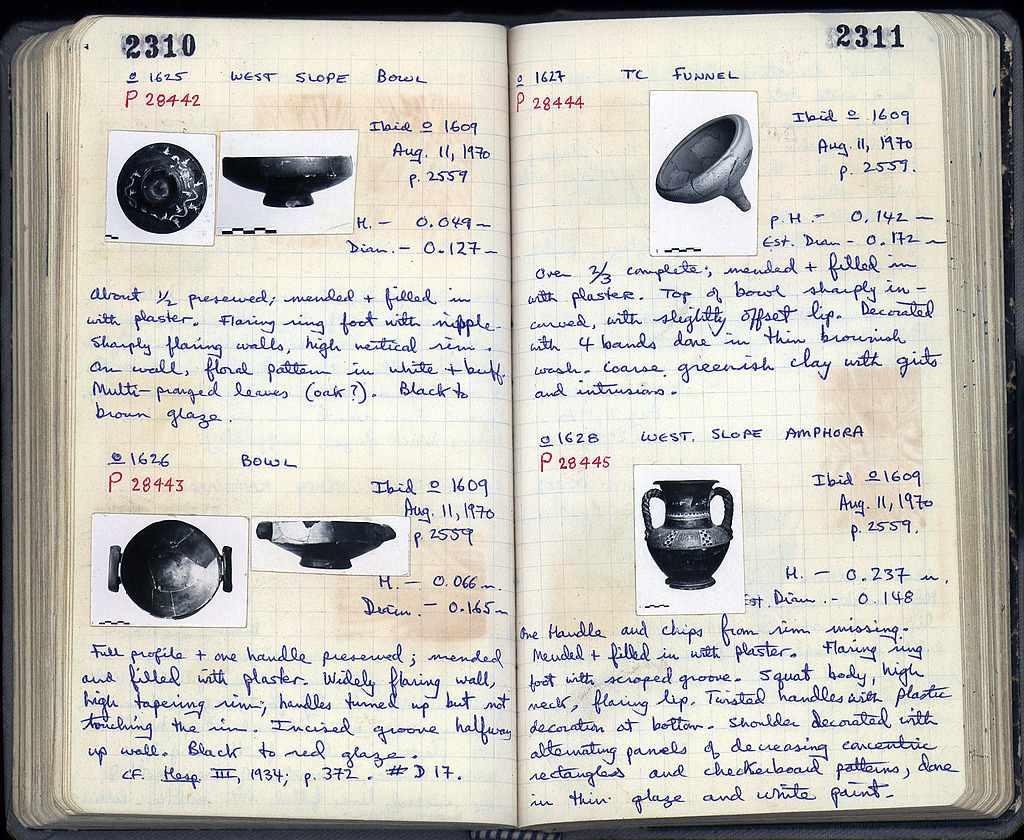 2310
o 1625 WEST SLOPE BOWL
P 28442
Ibid o 1609
Aug. 11, 1970
p. 2559
H. - 0.049 m
Diam. - 0.127 m
About 1/2 preserved; mended + filled in
with plaster. Flaring ring foot with nipple.
Sharply flaring walls, high vertical rim.
On wall, floral pattern in white + buff.
Multi-pronged leaves (oak?). Black to
brown glaze.
o 1626 BOWL
P 28443
Ibid o 1609
Aug. 11, 1970
p. 2559
H. - 0.066 m.
Diam. - 0.165 m
Full profile + one handle preserved; mended
and filled with plaster. Widely flaring wall,
high tapering rim; handles turned up but not
touching the rim. Incised groove halfway
up wall. Black to red glaze.
cf. Hesp. III, 1934; p. 372. # D 17.
2311
o 1627 TC FUNNEL
P 28444
Ibid o 1609
Aug. 11, 1970
p. 2559.
p. H. - 0.142 m
Est. Diam - 0.172 m
Over 2/3 complete; mended + filled in
with plaster. Top of bowl sharply in-
curved, with slightly offset lip. Decorated
with 4 bands done in thin brownish
wash. Coarse greenish clay with grits
and intrusions.
o 1628 WEST. SLOPE AMPHORA
P 28445
Ibid o 1609
Aug. 11, 1970
p. 2559.
H. - 0.237 m.
Est. Diam. - 0.148
One Handle and chips from rim missing.
Mended + filled in with plaster. Flaring ring
foot with scraped groove. Squat body, high
neck, flaring lip. Twisted handles with plastic
decoration at bottom. Shoulder decorated with
alternating panels of decreasing concentric
rectangles and checkerboard patterns, done
in thin glaze and white paint.